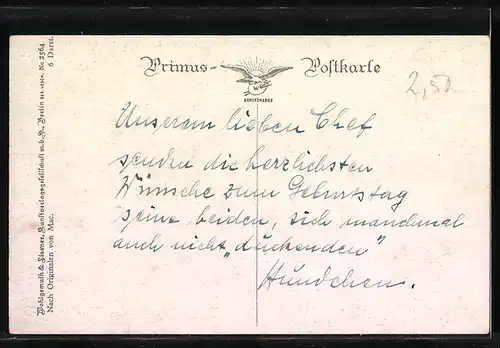 Primus- Postkarte
SCHUTZMARKE
2,50
Unserem lieben Chef
senden die herzlichsten
Wünsche zum Geburtstag
seine beiden, sich manchmal
auch nicht „duckenden"
Hündchen.
Wohlgemuth & Lissner, Kunstverlagsgesellschaft m.b.H., Berlin No 2564
Nach Originalen von Mac. 6 Darst.